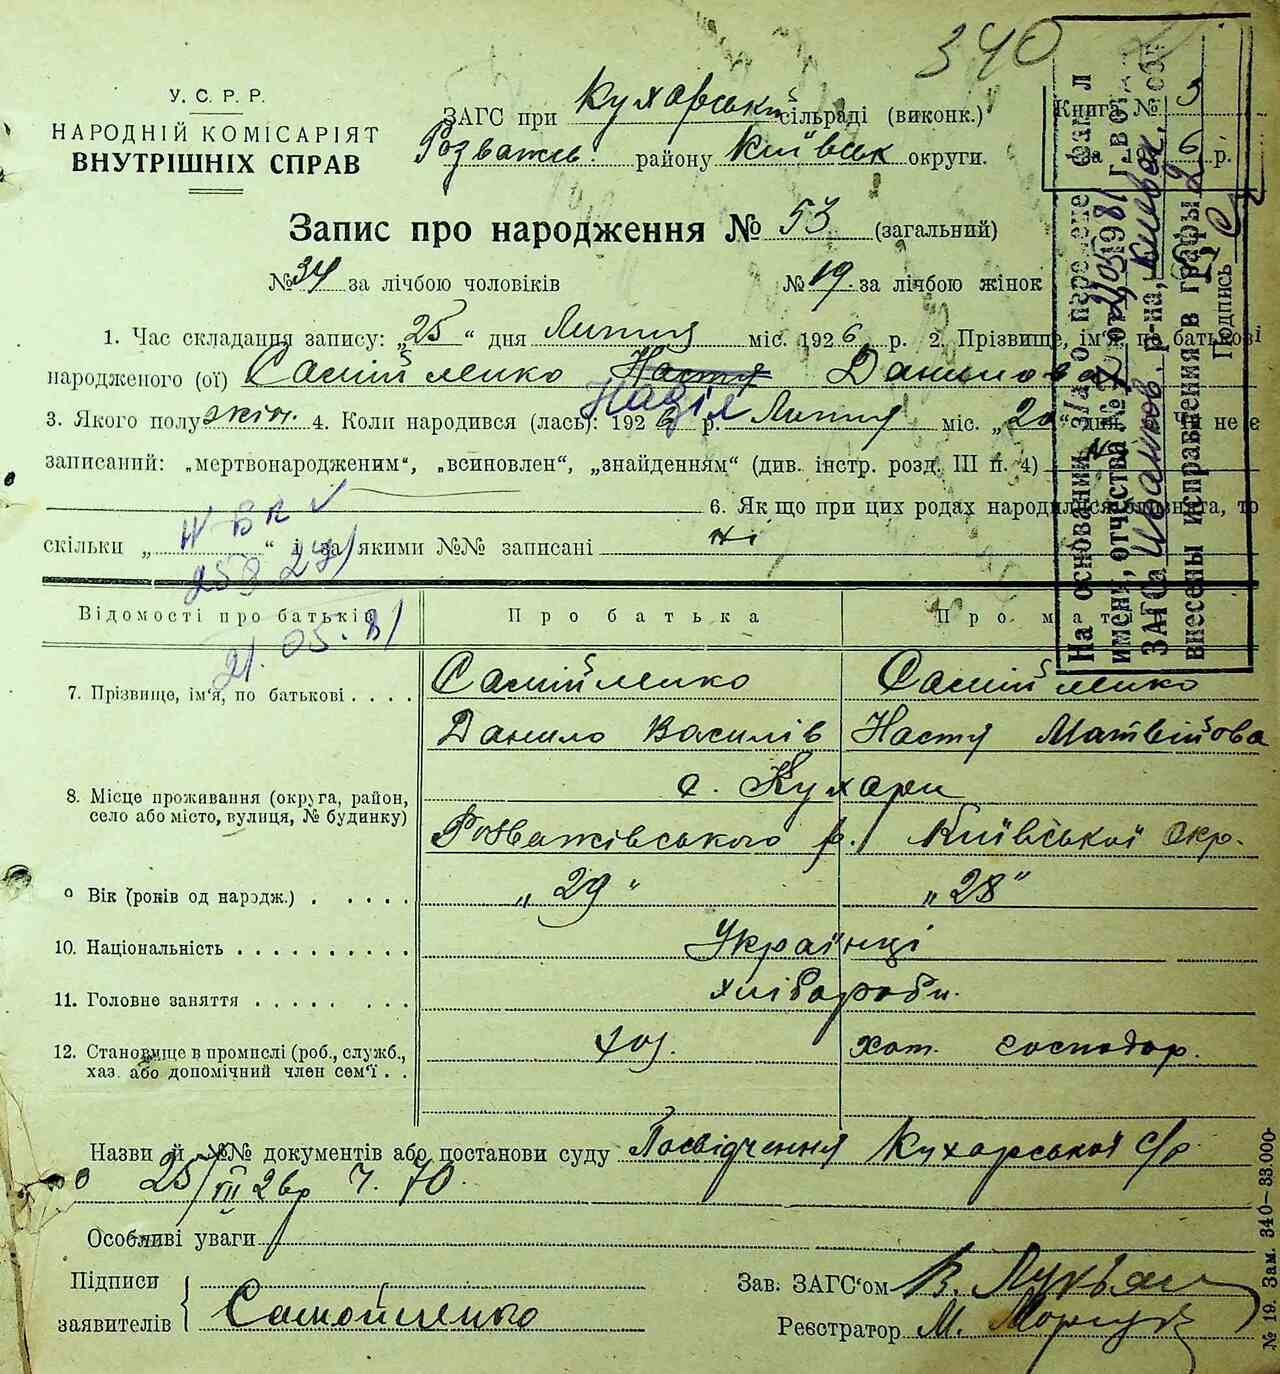 340
У. С. Р. Р.
НАРОДНІЙ КОМІСАРІЯТ
ВНУТРІШНІХ СПРАВ
ЗАГС при Кухарській сільраді (виконк.)
Розважев. району Київськ округи.
Книга № 3
за 192 6 р.
Запис про народження № 53 (загальний)
№ 34 за лічбою чоловіків № 19. за лічбою жінок
1. Час складання запису: „25“ дня Лютня міс. 1926 р. 2. Прізвище, ім'я, по батькові
народженого (ої) Самійленко Настя Данилова
Надія
3. Якого полу жін. 4. Коли народився (лась): 1926 р. Лютня міс. „20“ дня Чи не є
записаний: „мертвонародженим“, „всиновлен“, „знайденням“ (див. інстр. розд. III п. 4)
6. Як що при цих родах народилися двійнята, то
скільки „ “ і за якими №№ записані ні
21.05.81
На основании з/а о перемене
имени, отчества № 2 от 1981
ЗАГСа Иванков. р-на, Киевск. обл
внесены исправления в графы 2
Подпись
Відомості про батьків Про батька Про мат
7. Прізвище, ім'я, по батькові . . . . Самійленко Самійленко
Данило Василів Настя Матвійова
8. Місце проживання (округа, район, с. Кухари
село або місто, вулиця, № будинку) Розважівського р. Київської Окр.
9 Вік (років од народж.) . . . . . „29“ „28“
10. Національність . . . . . . . . . . Українці
11. Головне заняття . . . . . . . . хлібороби.
12. Становище в промислі (роб., служб., хоз. хат. господар.
хаз. або допомічний член сем'ї . .
Назви й №№ документів або постанови суду Посвідчення Кухарської с/р
25/III 26р Ч. 70.
Особливі уваги
Підписи
заявителів Самойленко
Зав. ЗАГС'ом В.
Реєстратор М.
№ 19. Зам. 340—33.000